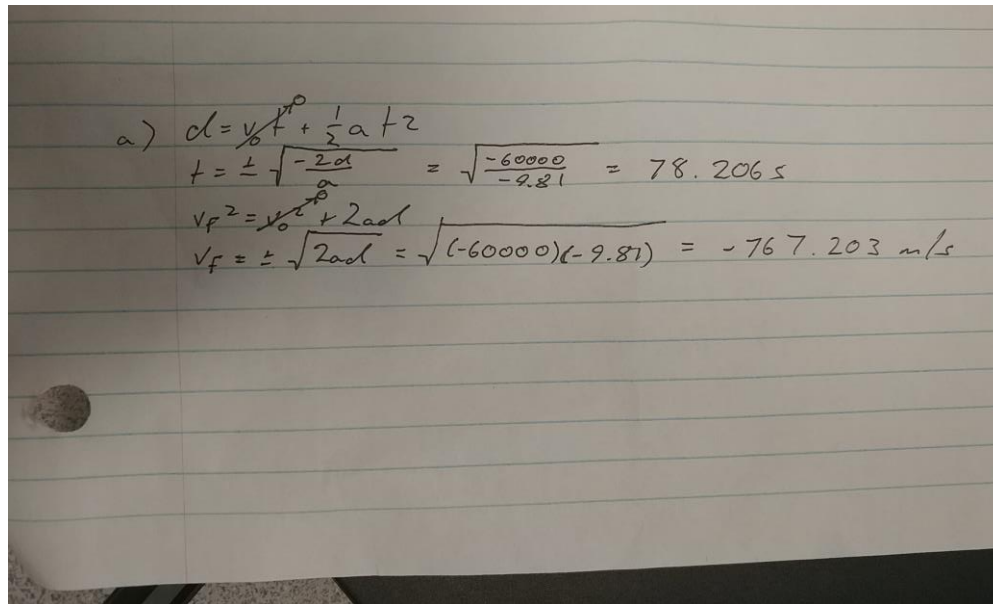 a) d = v₀t→0 + 1/2 a t2
t = ± √(-2d/a) = √(-60000/-9.81) = 78.206 s
v_f² = v₀²→0 + 2ad
v_f = ± √(2ad) = √((-60000)(-9.81)) = -767.203 m/s